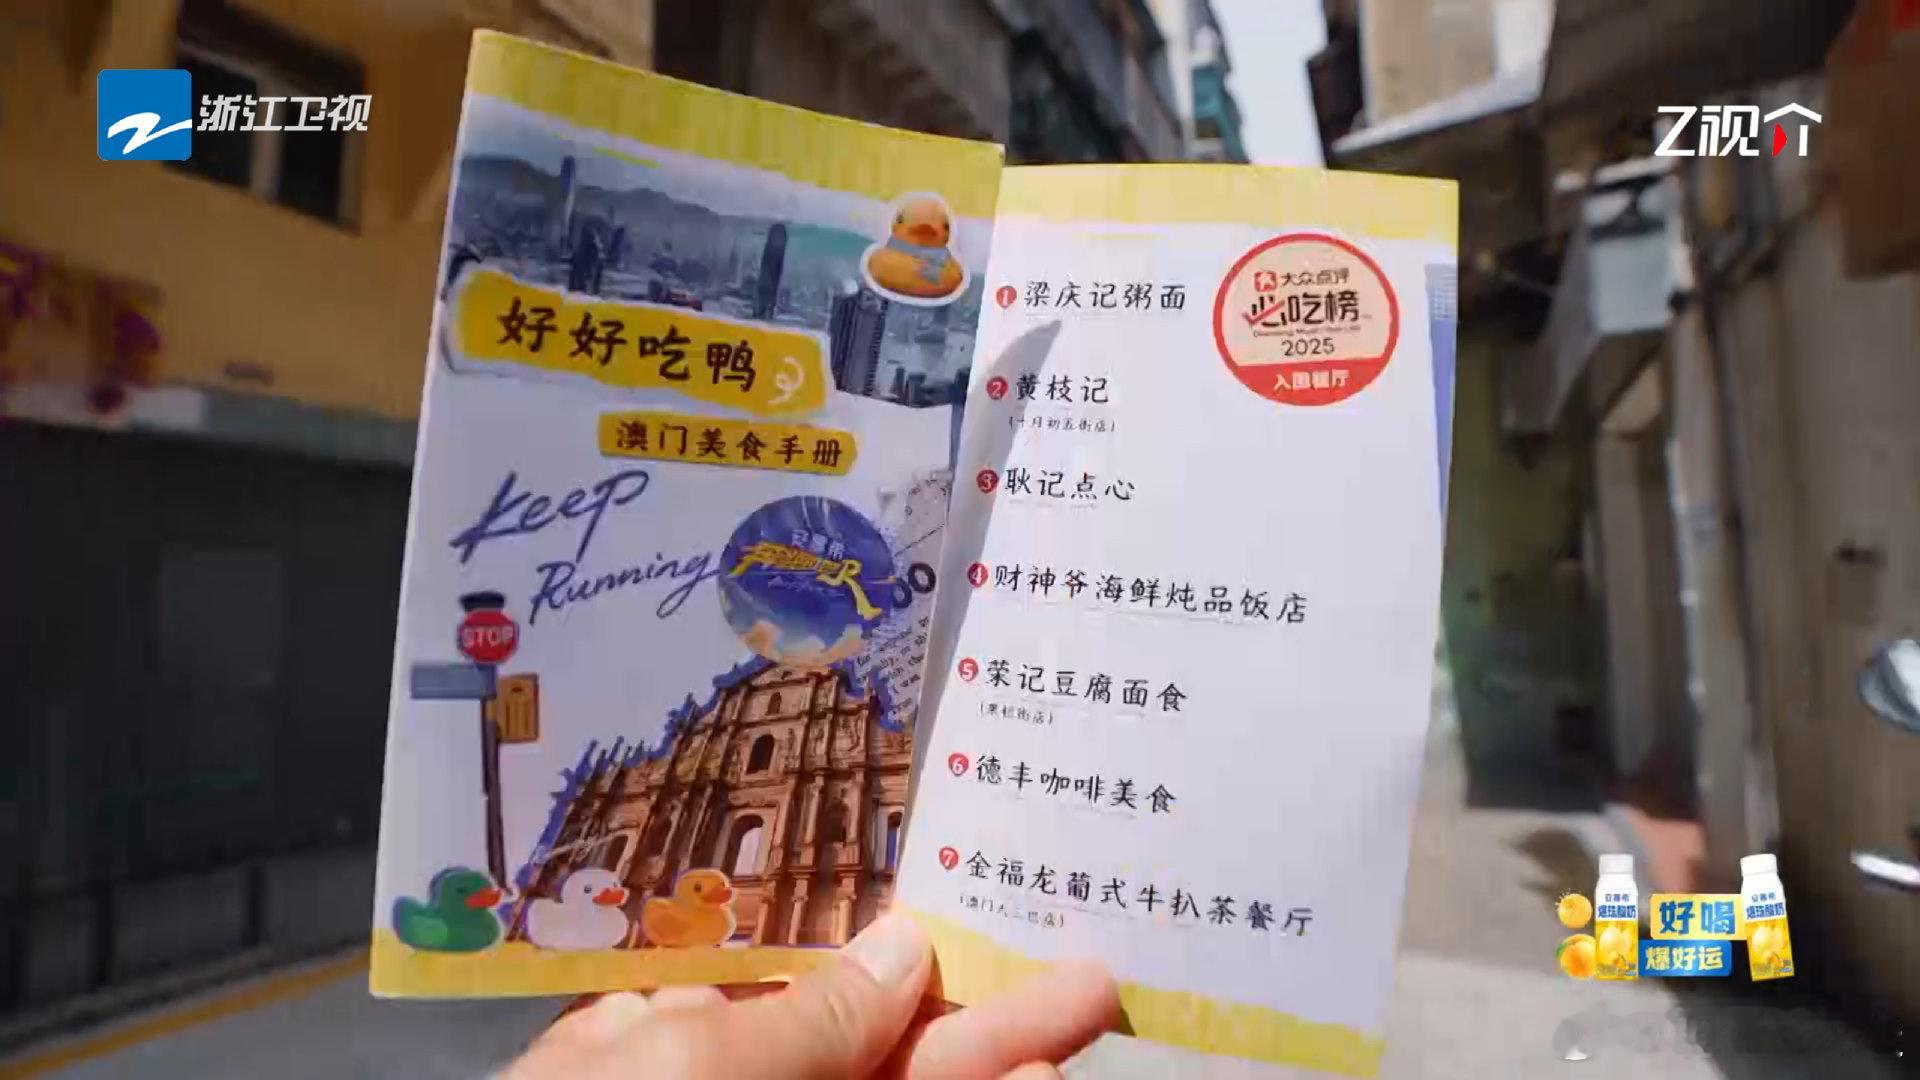 浙江卫视
Z视介
好好吃鸭
澳门美食手册
Keep
Running
安慕希
STOP
大众点评
必吃榜
2025
入围餐厅
1 梁庆记粥面
2 黄枝记
(十月初五街店)
3 耿记点心
4 财神爷海鲜炖品饭店
5 荣记豆腐面食
(果栏街店)
6 德丰咖啡美食
7 金福龙葡式牛扒茶餐厅
(澳门大三巴店)
安慕希
爆珠酸奶
好喝
爆好运